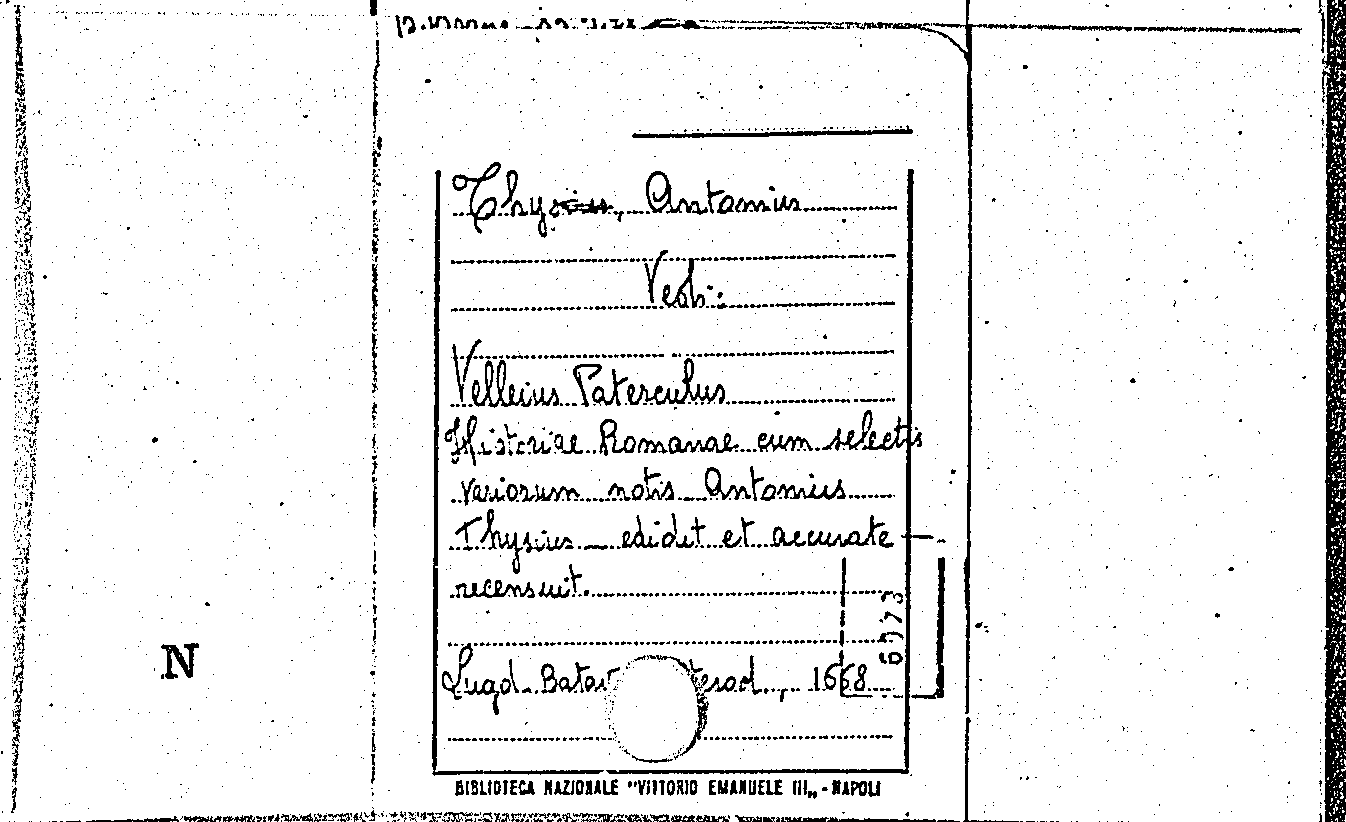 Thysius, Antonius
Veds:
Velleius Paterculus
Historiae Romanae cum selectis
variorum notis Antonius
Thysius edidit et accurate
recensuit.
Lugd. Batav terod., 1668
6773
N
BIBLIOTECA NAZIONALE "VITTORIO EMANUELE III„ - NAPOLI